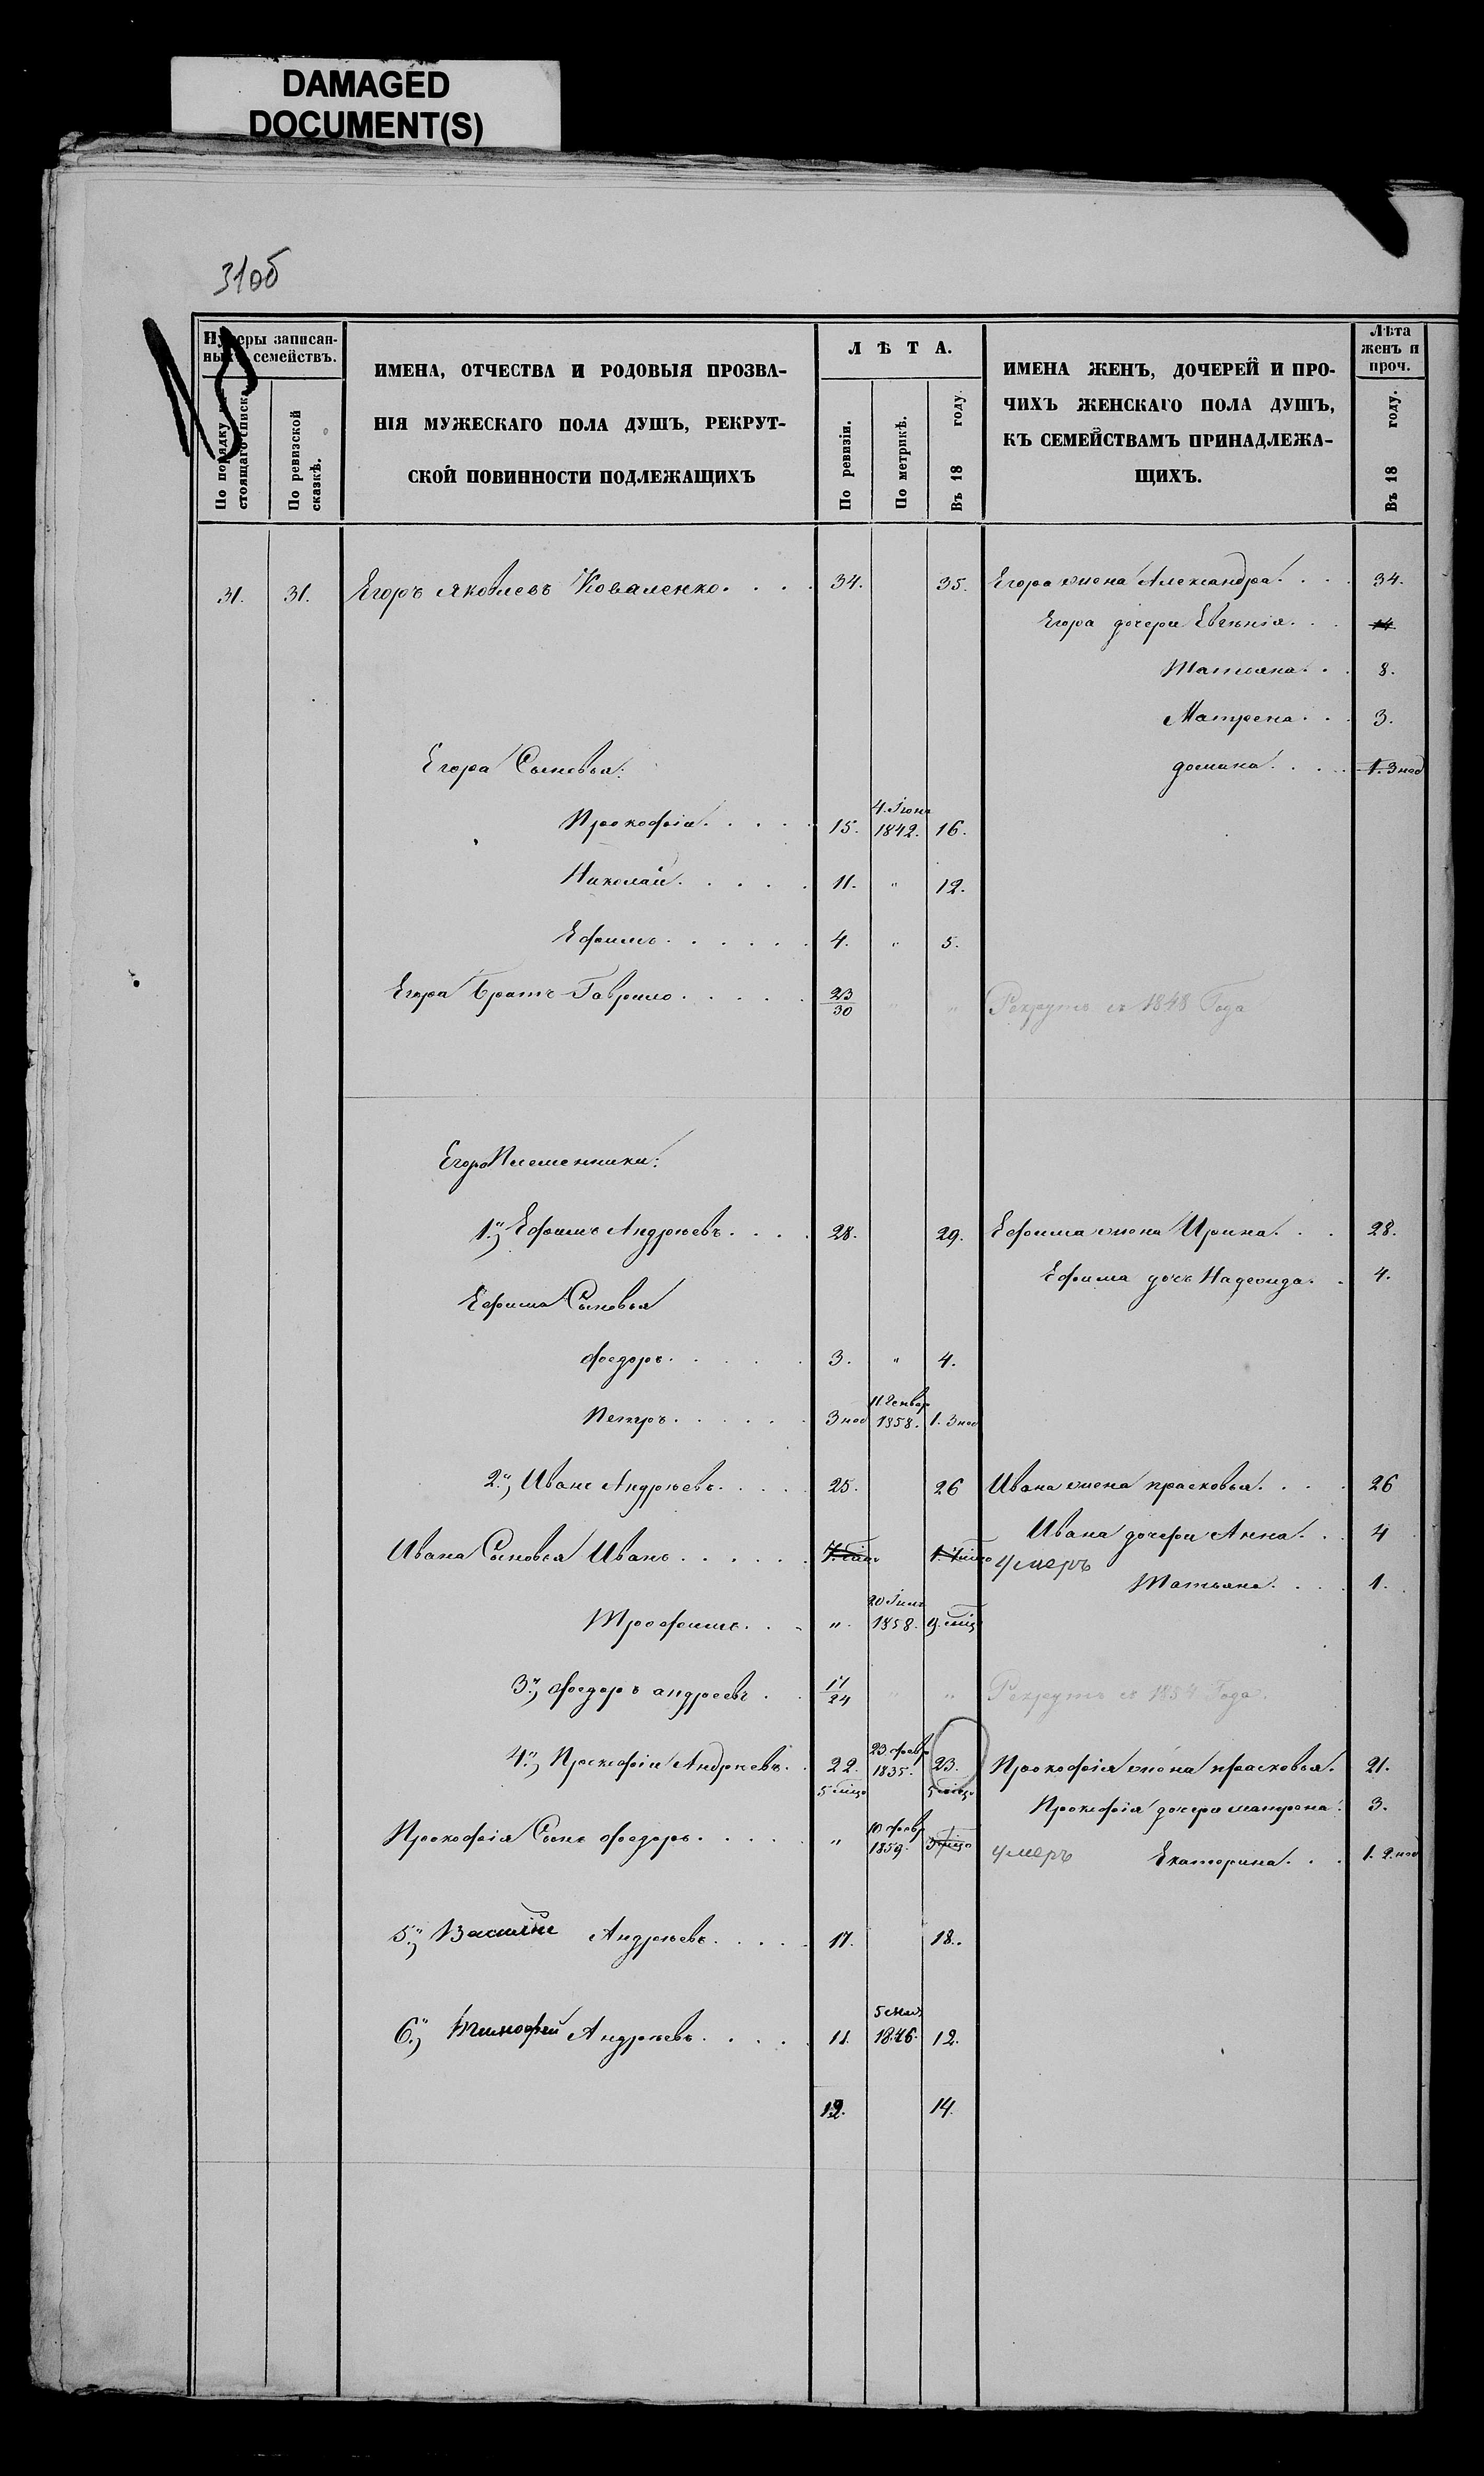 DAMAGED
DOCUMENT(S)
31об
Нумеры записан-
ныхъ семействъ.
По порядку на-
стоящаго списка.
По ревизской
сказкѣ.
ИМЕНА, ОТЧЕСТВА И РОДОВЫЯ ПРОЗВА-
НІЯ МУЖЕСКАГО ПОЛА ДУШЪ, РЕКРУТ-
СКОЙ ПОВИННОСТИ ПОДЛЕЖАЩИХЪ
ЛѢТА.
По ревизіи.
По метрикѣ.
Въ 18 году.
ИМЕНА ЖЕНЪ, ДОЧЕРЕЙ И ПРО-
ЧИХЪ ЖЕНСКАГО ПОЛА ДУШЪ,
КЪ СЕМЕЙСТВАМЪ ПРИНАДЛЕЖА-
ЩИХЪ.
Лѣта
женъ и
проч.
Въ 18 году.
31. 31. Егоръ Яковлевъ Коваленко. . . . 34. 35. Егора жена Александра. . . . 34.
Егора дочери Евгенія. . . 14
Татьяна. . . 8.
Матрена. . . 3.
Егора Сыновья: домна. . . . 1. 3 нед
Прокофій. . . . . 15. 4. Іюня 1842. 16.
Николай. . . . . 11. " 12.
Ефимъ. . . . . . 4. " 5.
Егора Братъ Гаврило. . . . . 23/30 " " Рекрутъ съ 1848 Года
Егора Племенники:
1.й Ефимъ Андрѣевъ. . . . 28. 29. Ефима жена Ирина. . . 28.
Ефима дочь Надежда. . 4.
Ефима Сыновья
Федоръ. . . . . 3. " 4.
Петръ. . . . . 3 нед 11 Генвар 1858. 1. 3 нед
2.й Иванъ Андрѣевъ. . . . . 25. 26 Ивана жена прасковья. . . . 26
Ивана дочери Анна. . . 4
Ивана Сыновья Иванъ. . . . . . умеръ
Татьяна. . . . 1.
Трофимъ. . . " 1858. 9. мѣц
3.й Федоръ андреевъ . . 17/24 " " Рекрутъ съ 1854 Года.
4.й Прокофій Андрѣевъ. . 22. 5 мѣцо 23 Февр 1835. 23. 5 мѣцо Прокофія жена прасковья. 21.
Прокофія дочери матрона. 3.
Прокофія Сынъ Федоръ. . . . . " 10 Февр 1859. умеръ Екатерина. . . 1. 2. нед
5.й Василій Андрѣевъ. . . . . 17. 18.
6.й Тимофей Андрѣевъ. . . . . 11. 1846. 12.
12. 14.